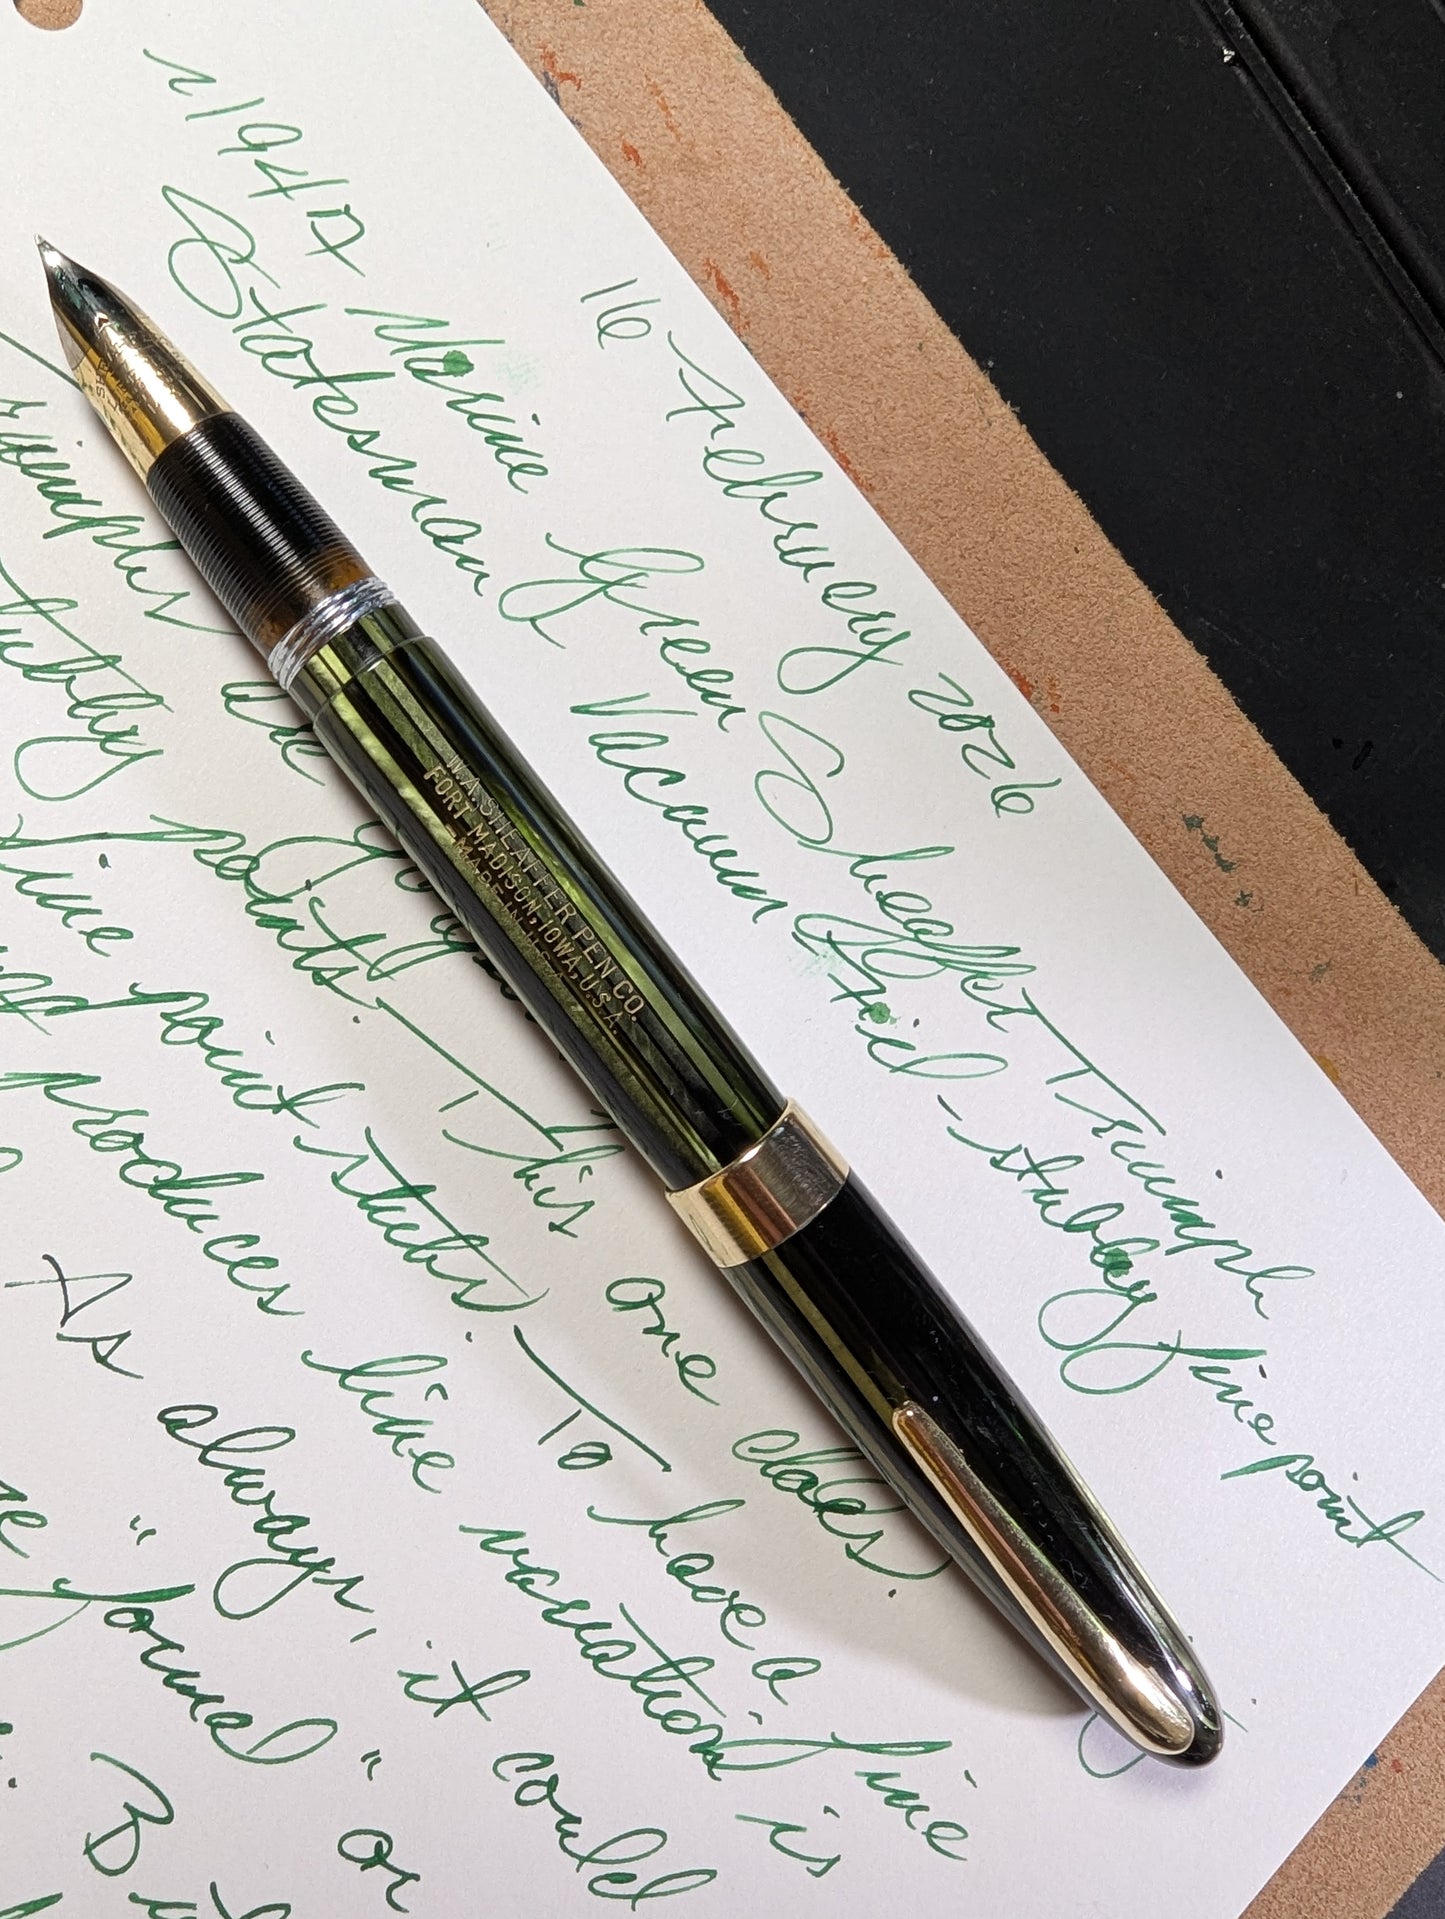 16 February 2026
Marine Green Sheaffer Triumph
Statesman Vacuum-Fil – stubby fine point
Triumphs
stubby points. This one does.
fine point stubs). To have a fine
produces line variation is
As always, it could
"formal" or
W.A. SHEAFFER PEN CO.
FORT MADISON, IOWA, U.S.A.
-MADE IN U.S.A.-